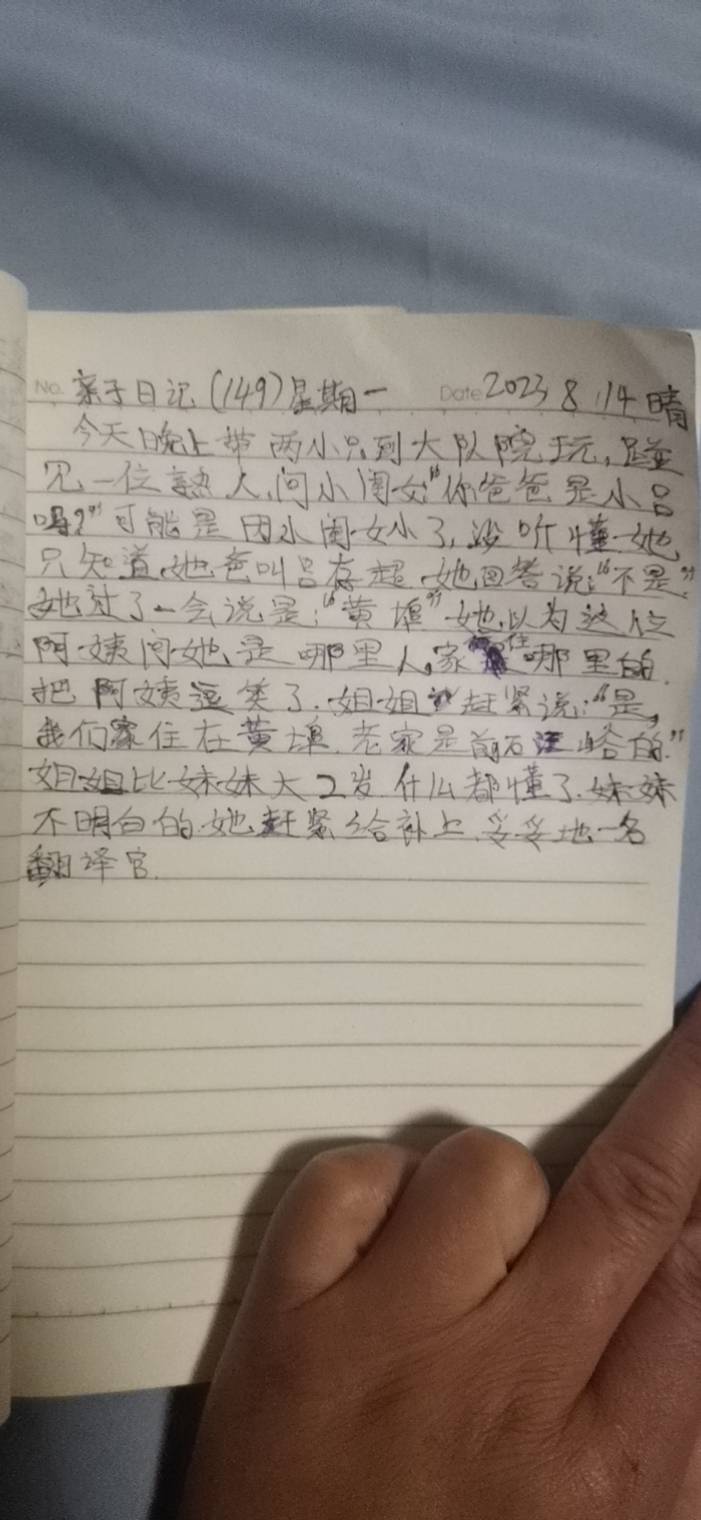 No. 亲子日记(149)星期一 Date 2023 8.14 晴
今天晚上带两小只到大队院玩,碰
见一位熟人,问小闺女“你爸爸是小吕
吗?”可能是因小闺女小了,没听懂她
只知道她爸叫吕存超她回答说:“不是”
她过了一会说是:“黄埠”她以为这位
阿姨问她是哪里人,家住哪里的.
把阿姨逗笑了.姐姐赶紧说:“是,
我们家住在黄埠.老家是前石峪的.”
姐姐比妹妹大2岁什么都懂了.妹妹
不明白的她赶紧给补上.妥妥地一名
翻译官.